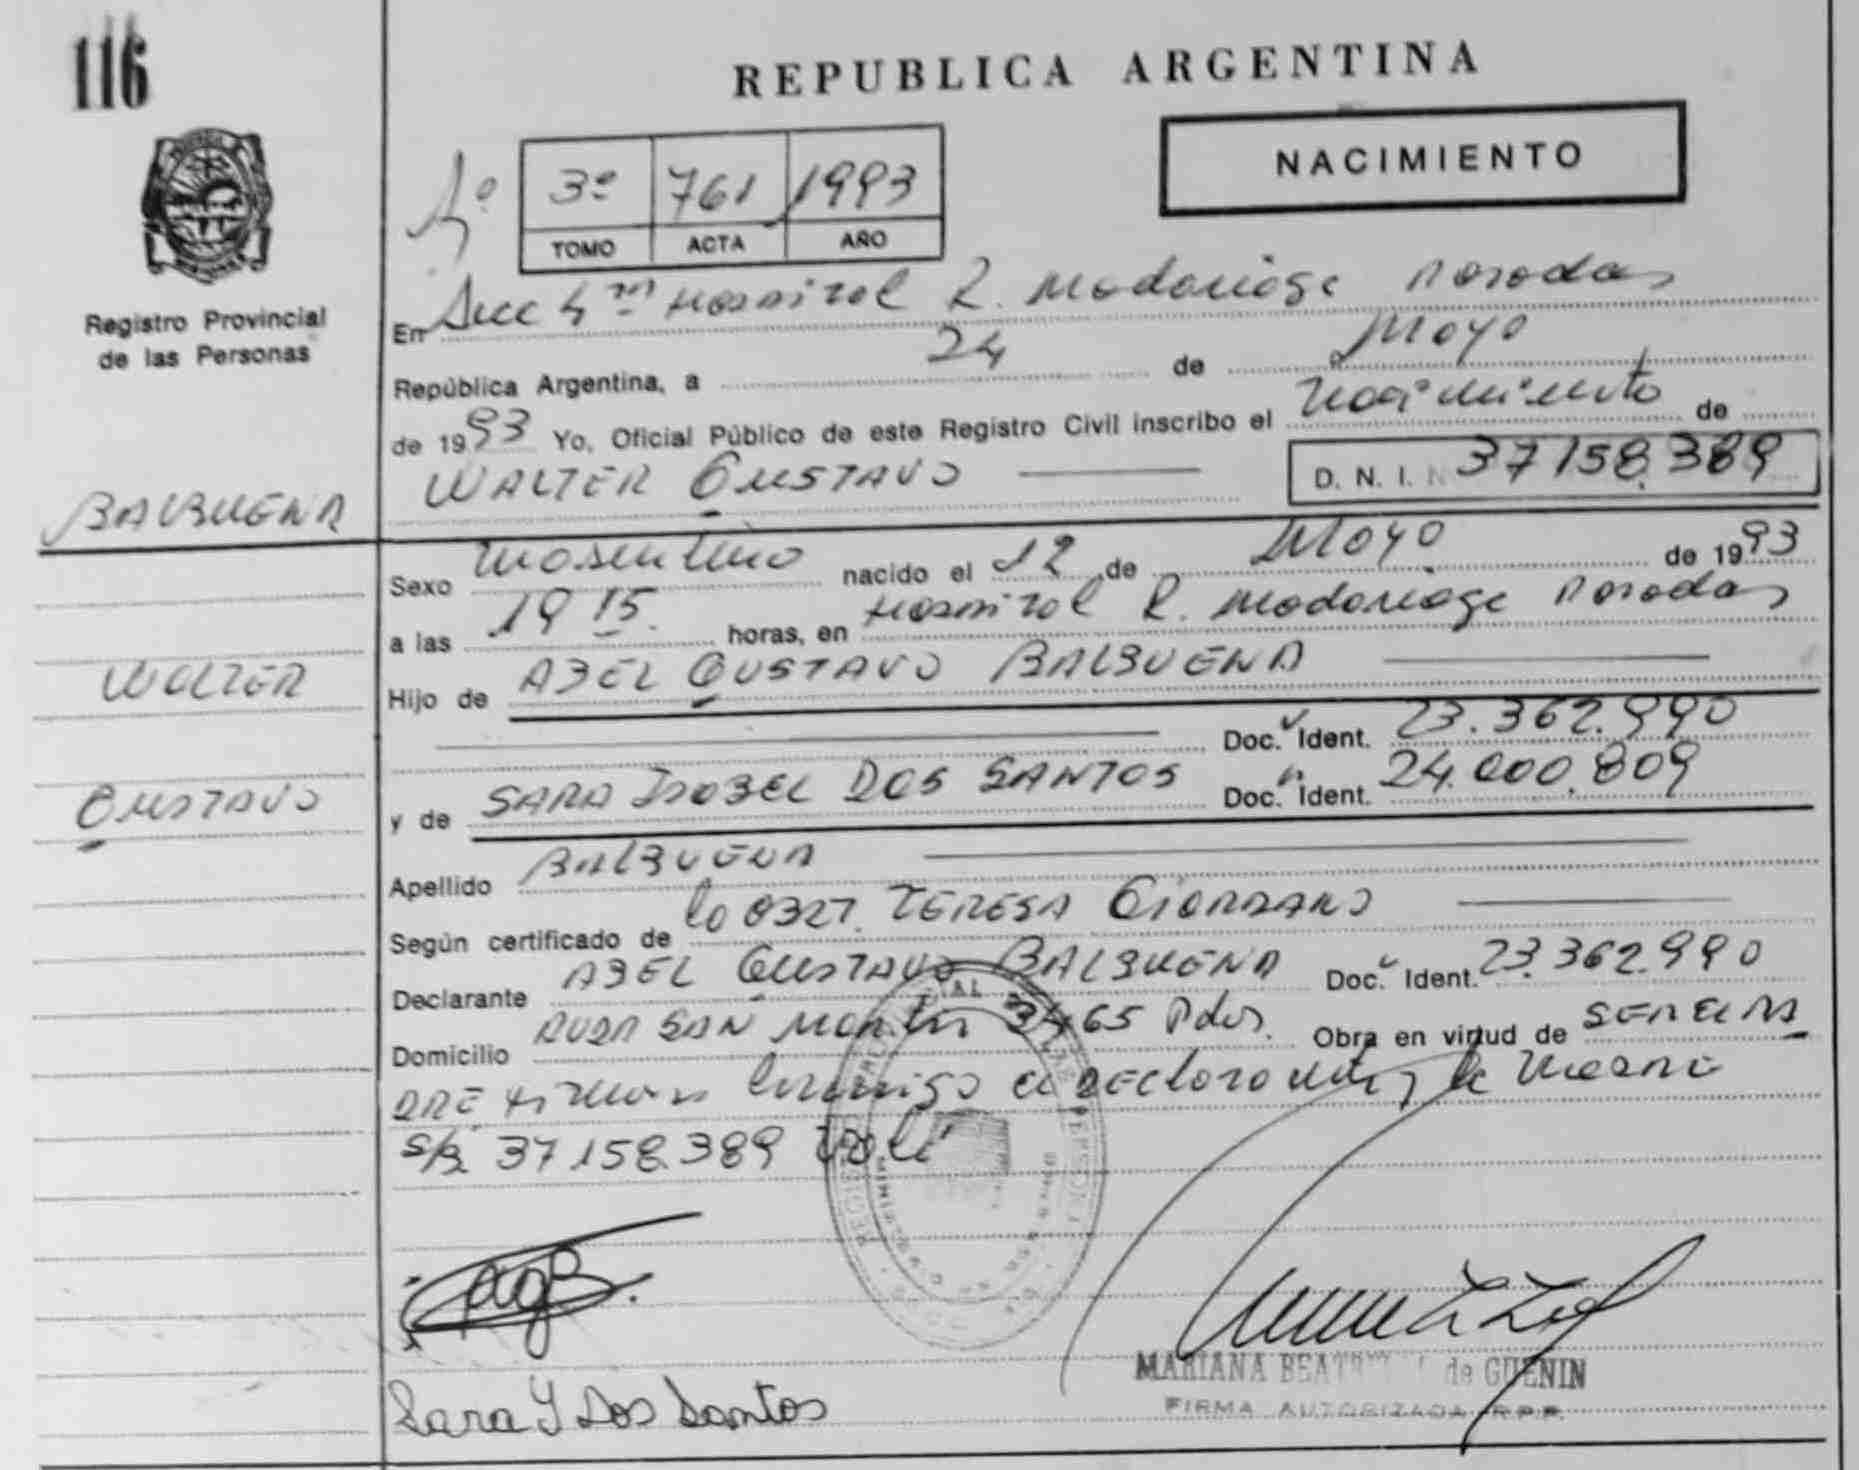 116
REPUBLICA ARGENTINA
NACIMIENTO
3º 761 1993
TOMO ACTA AÑO
Registro Provincial
de las Personas
En Secc 4ta Hospital R. Madariaga Posadas
República Argentina, a 24 de Mayo
de 1993 Yo, Oficial Público de este Registro Civil inscribo el nacimiento de
WALTER GUSTAVO
D. N. I. N 37158.389
BALBUENA
Sexo masculino nacido el 12 de Mayo de 1993
a las 19 15. horas, en Hospital R. Madariaga Posadas
WALTER
Hijo de ABEL GUSTAVO BALBUENA
Doc. Ident. 23.362.990
GUSTAVO
y de SARA ISABEL DOS SANTOS Doc. Ident. 24.000.809
Apellido BALBUENA
Según certificado de TERESA GIORDANO
Declarante ABEL GUSTAVO BALBUENA Doc. Ident. 23.362.990
Domicilio AVDA SAN Martin 3465 Pdas. Obra en virtud de
firman conmigo el declarante y la madre
s/r 37158389 Vale
Sara Y Dos Santos
MARIANA de GUENIN
FIRMA AUTORIZADA R.P.P.